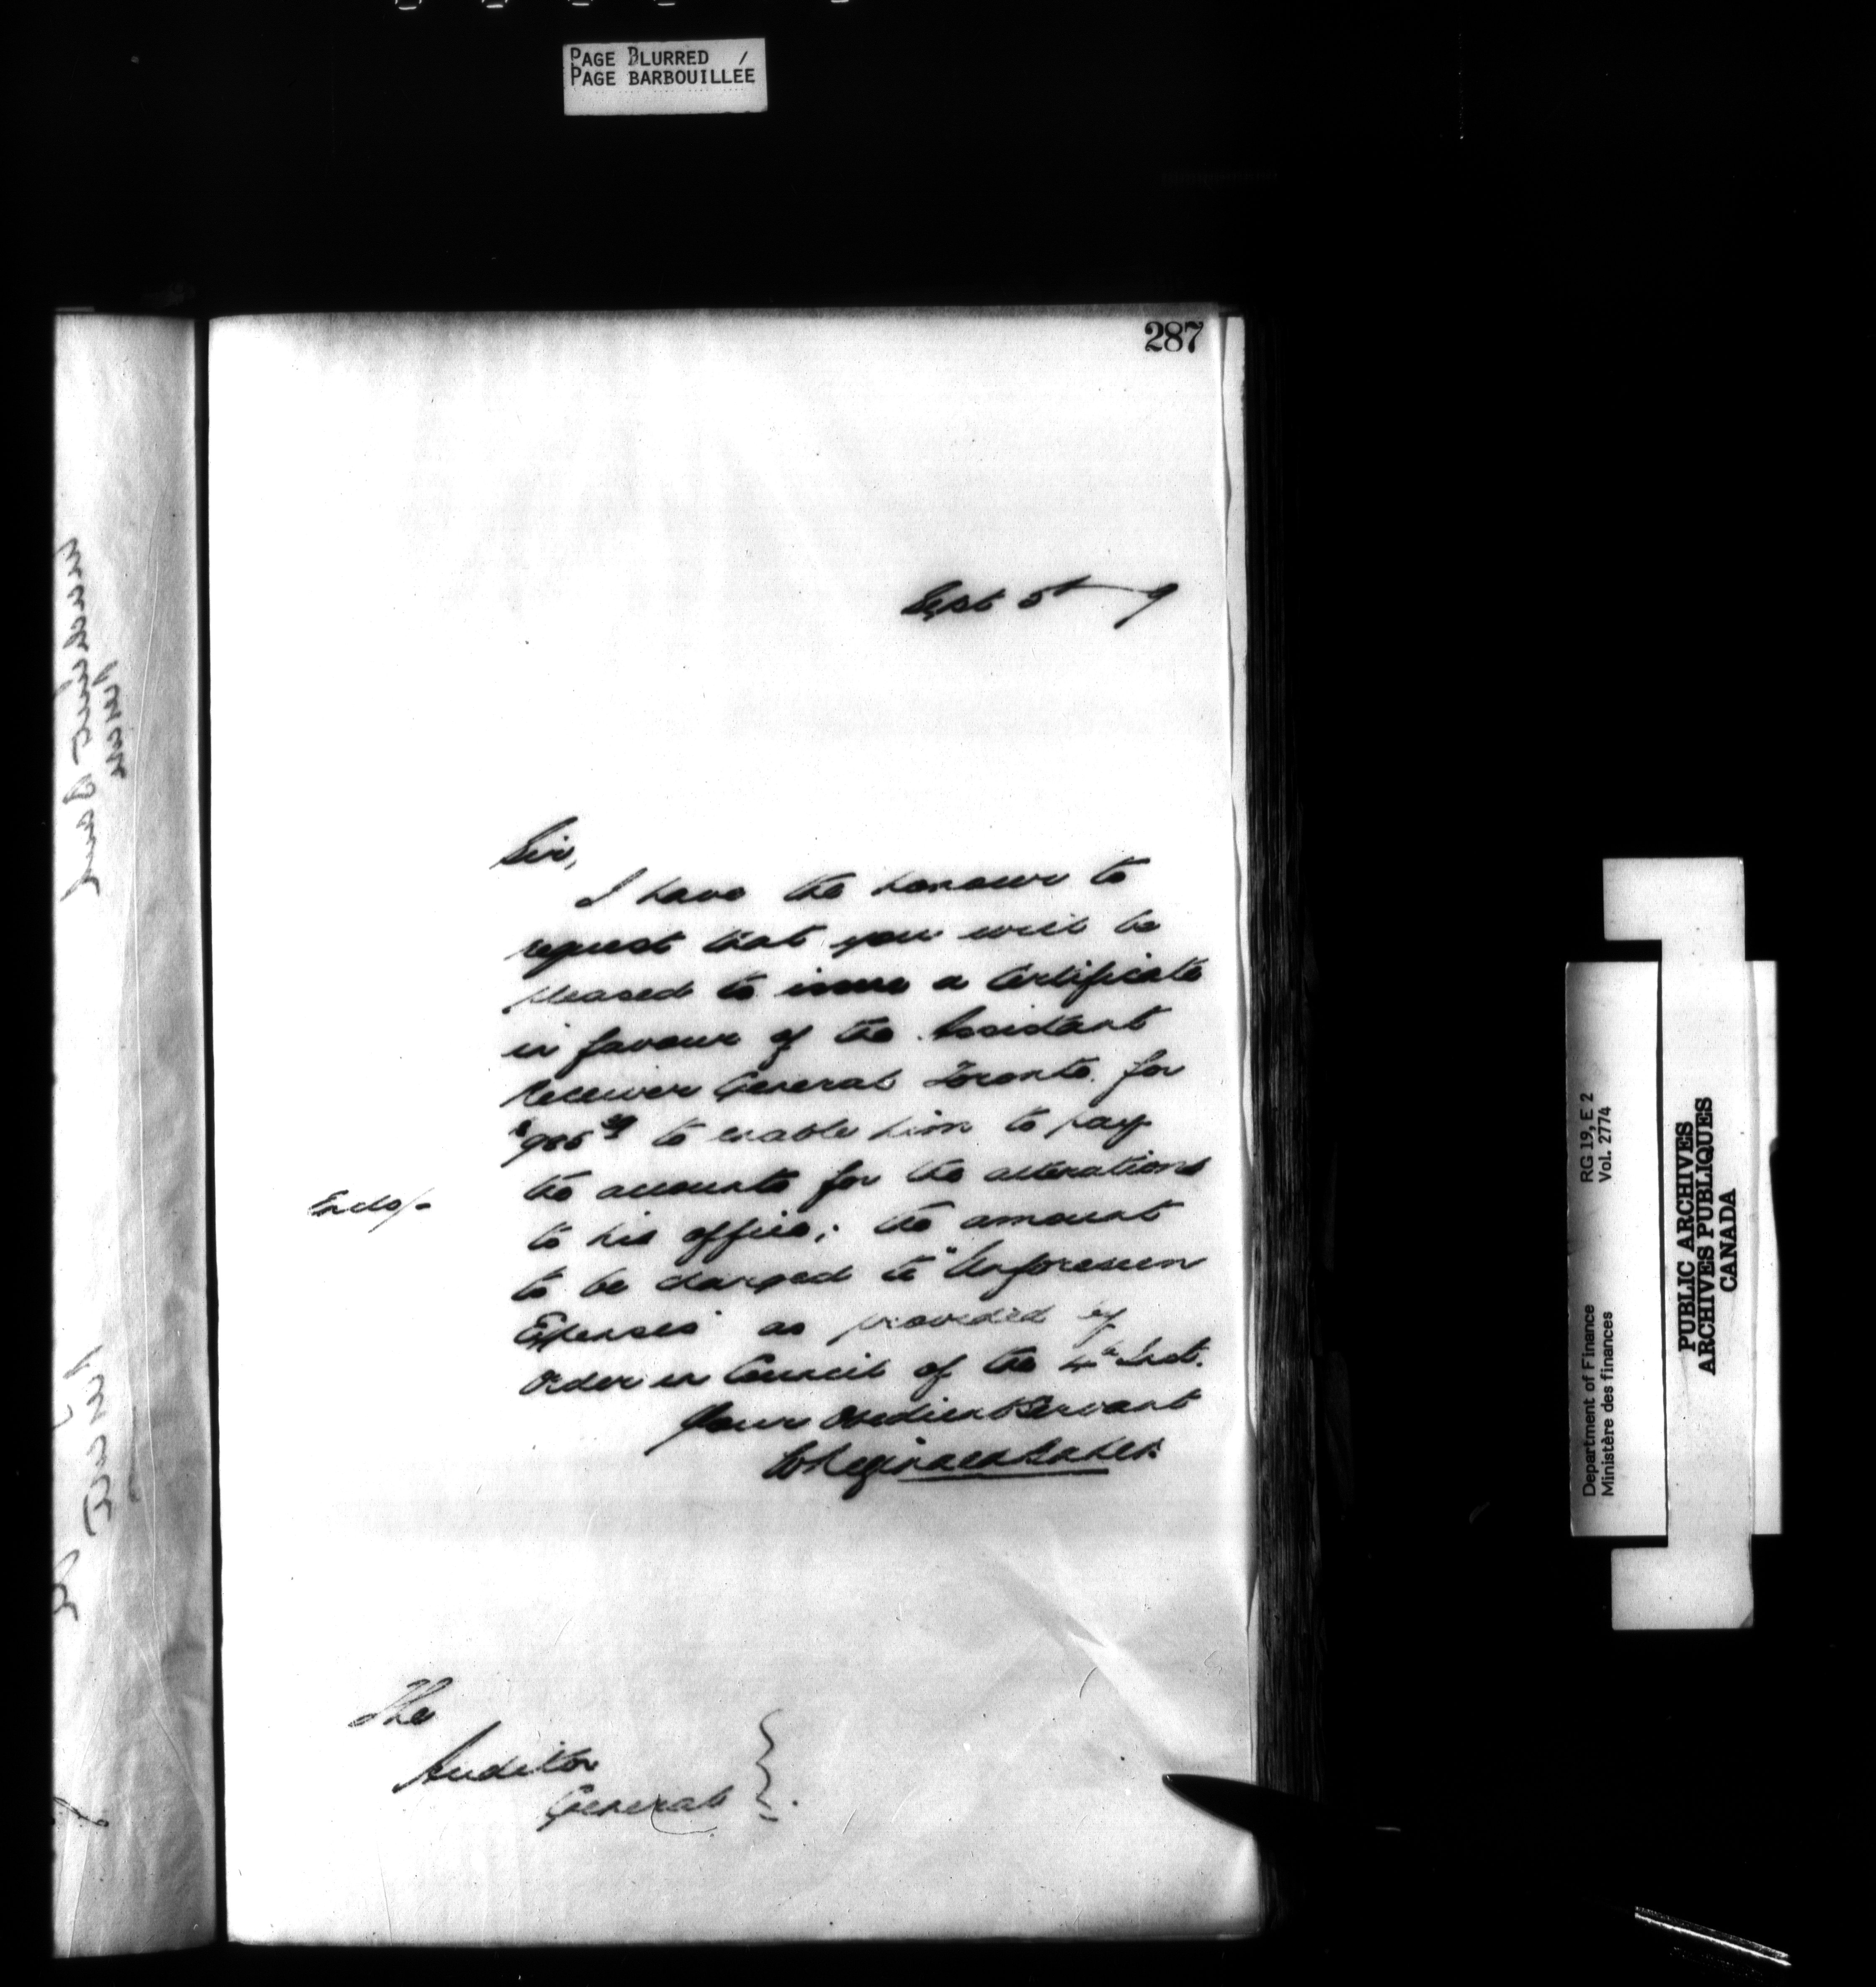 PAGE BLURRED /
PAGE BARBOUILLÉE
287
Sept 5th 9
Sir,
I have the honour to
request that you will be
pleased to issue a Certificate
in favour of the Assistant
Receiver General Toronto for
to enable him to pay
the accounts for the alterations
Enclos/-
to his office; the amount
to be charged to "Unforeseen
Expenses" as provided by
Order in Council of the 4th Inst.
Your Obedient Servant
The
Auditor
General
Department of Finance RG 19, E 2
Ministère des finances Vol. 2774
PUBLIC ARCHIVES
ARCHIVES PUBLIQUES
CANADA